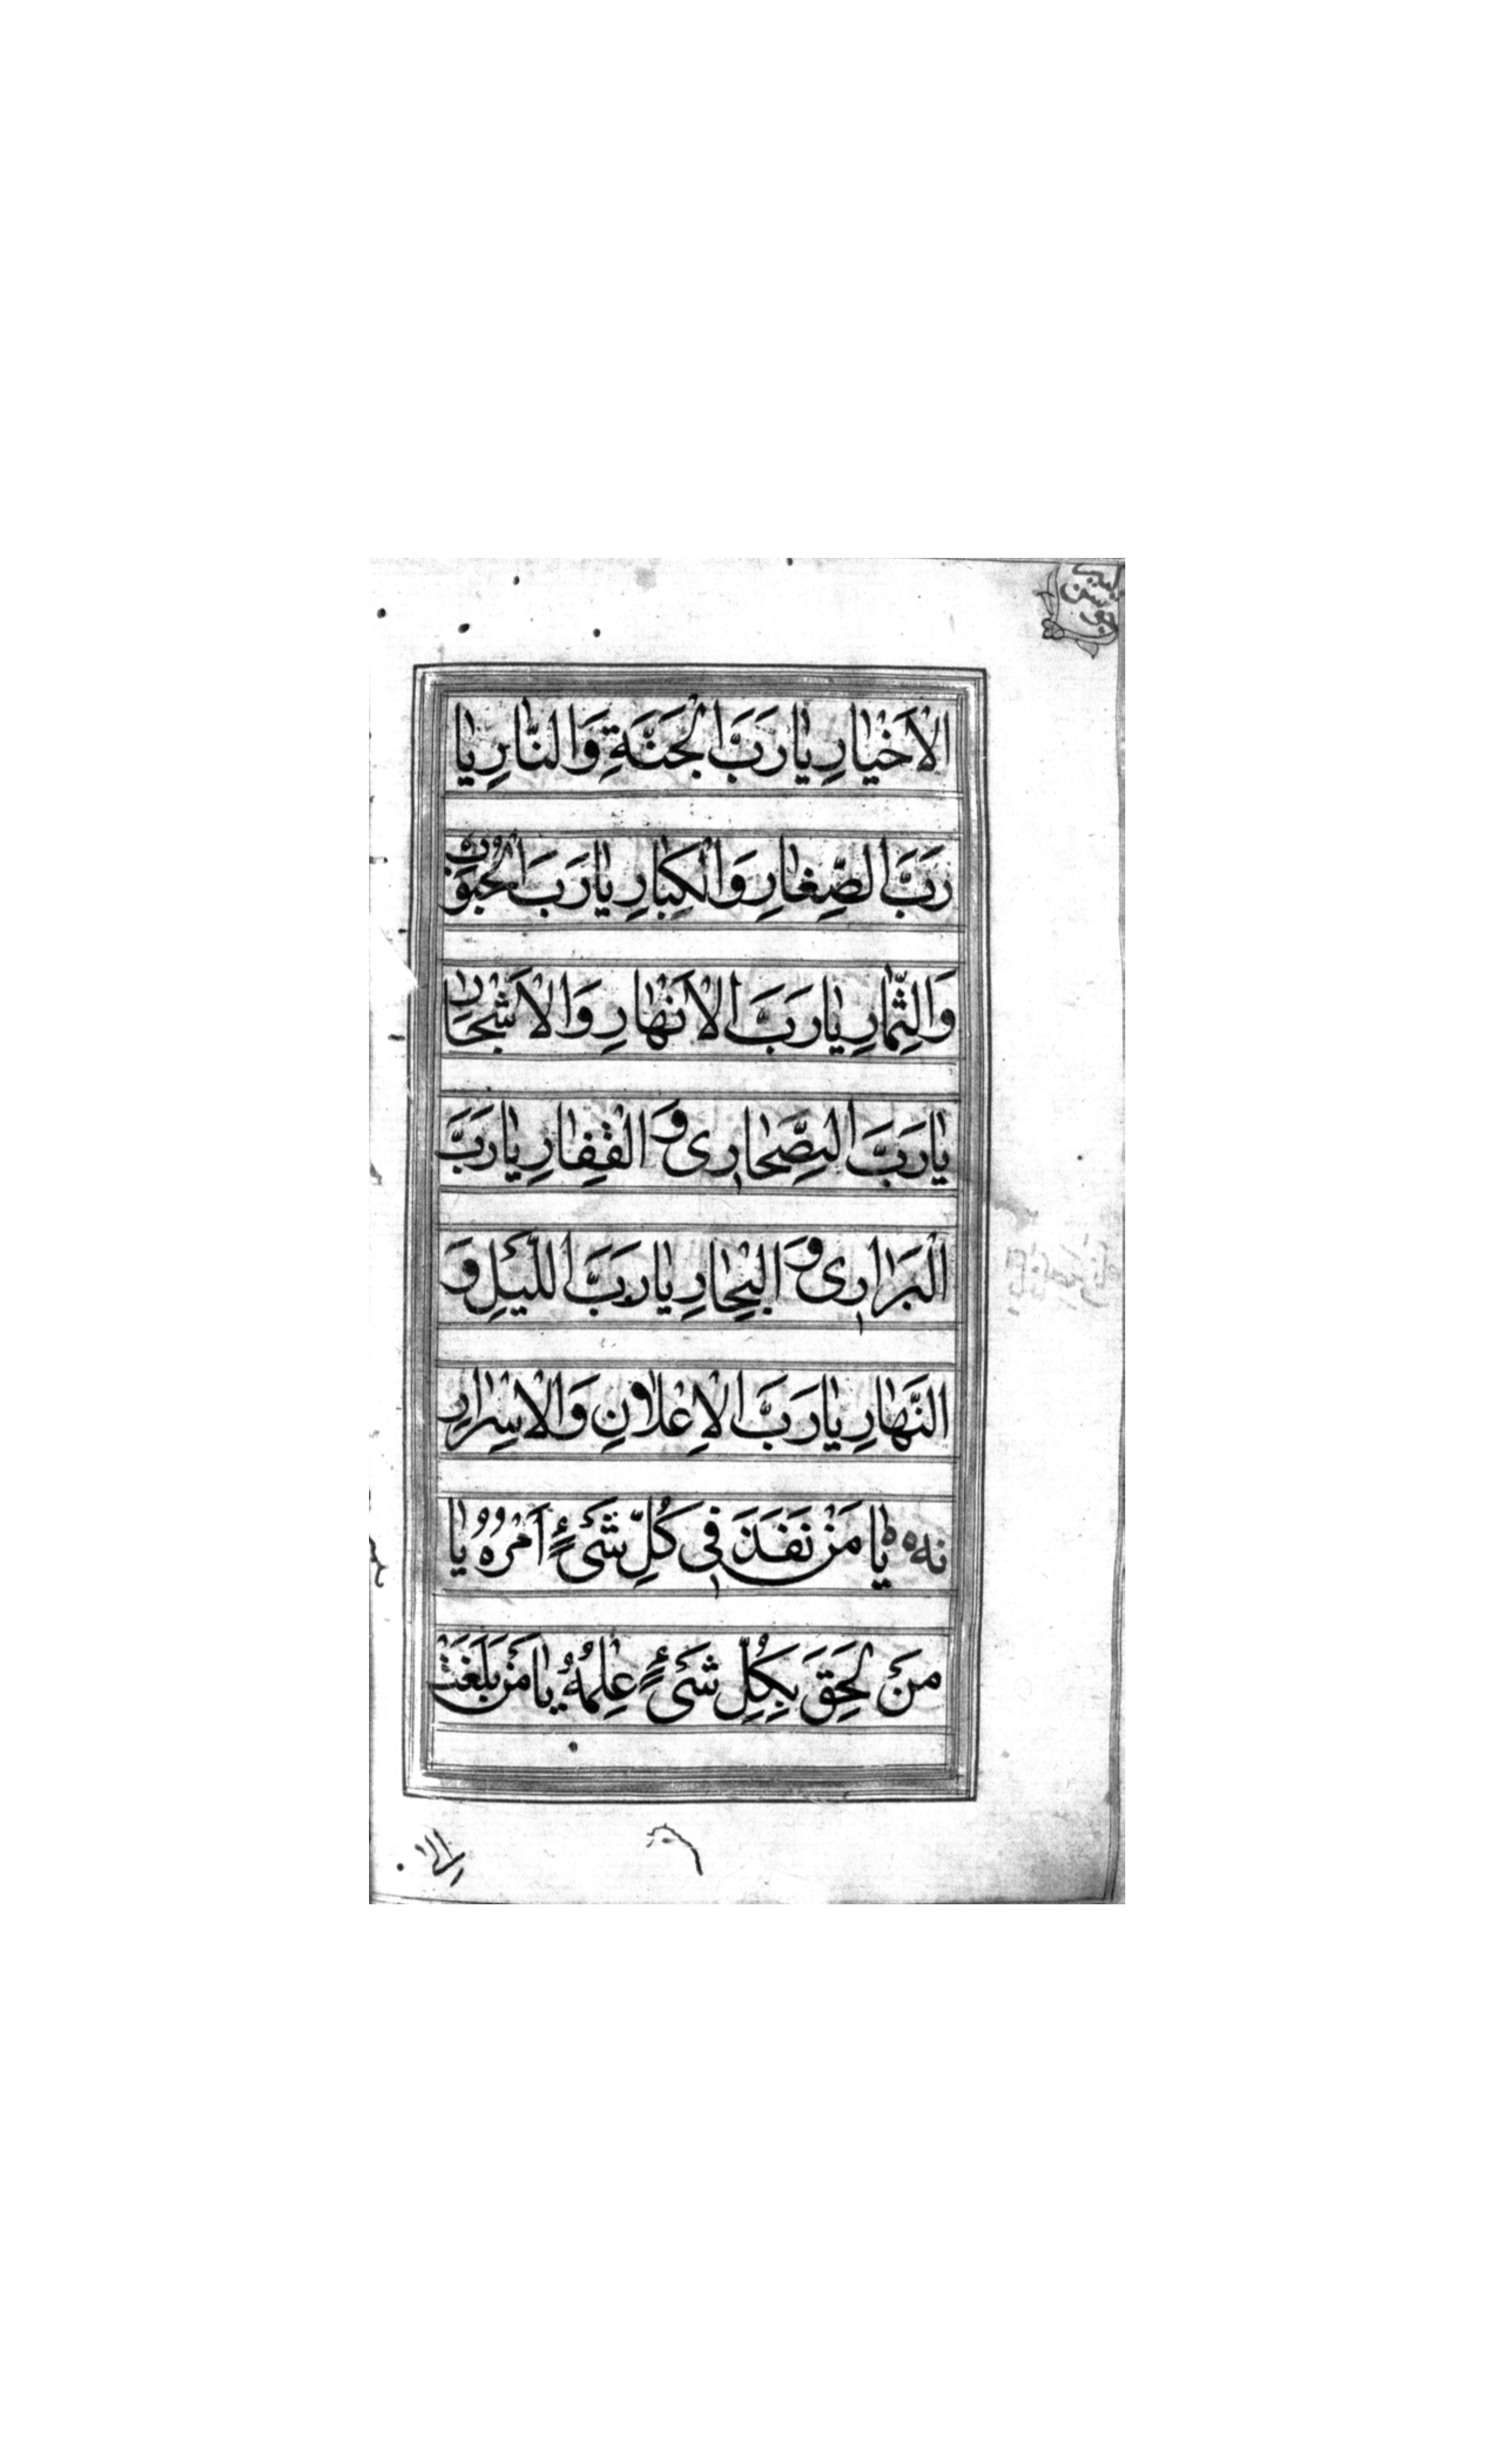 الْاَخْيٰارِ يٰا رَبَّ الْجَنَّةِ وَالنّٰارِ يٰا
رَبَّ الصِّغٰارِ وَالْكِبٰارِ يٰا رَبَّ الْحُبُوبِ
وَالثِّمٰارِ يٰا رَبَّ الْاَنْهٰارِ وَالْاَشْجٰارِ
يٰا رَبَّ الصَّحٰارِى وَ الْقِفٰارِ يٰا رَبَّ
الْبَرٰارِى وَ الْبِحٰارِ يٰا رَبَّ اللَّيْلِ وَ
النَّهٰارِ يٰا رَبَّ الْاِعْلٰانِ وَالْاِسْرٰارِ
نه يٰا مَنْ نَفَذَ فِى كُلِّ شَىْءٍ اَمْرُهُ يٰا
مَنْ لَحِقَ بِكُلِّ شَىْءٍ عِلْمُهُ يٰا مَنْ بَلَغَتْ